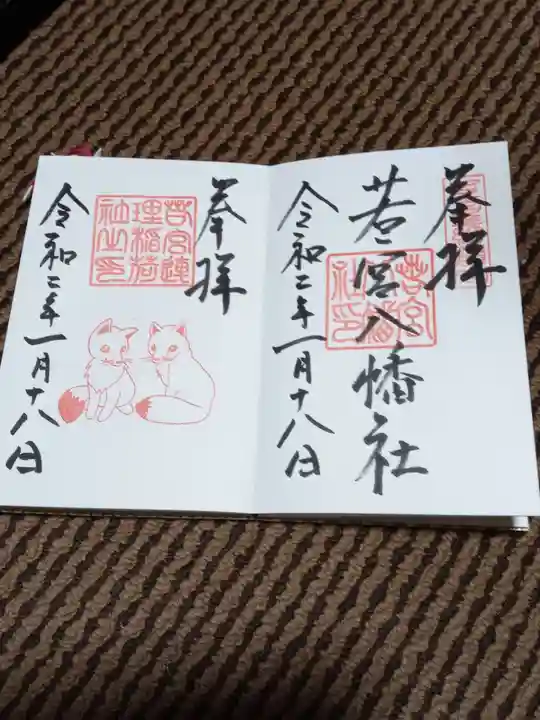 奉拝
若宮八幡社
若宮
社印
令和二年一月十八日
奉拝
若宮連
理稲荷
社之印
令和二年一月十八日